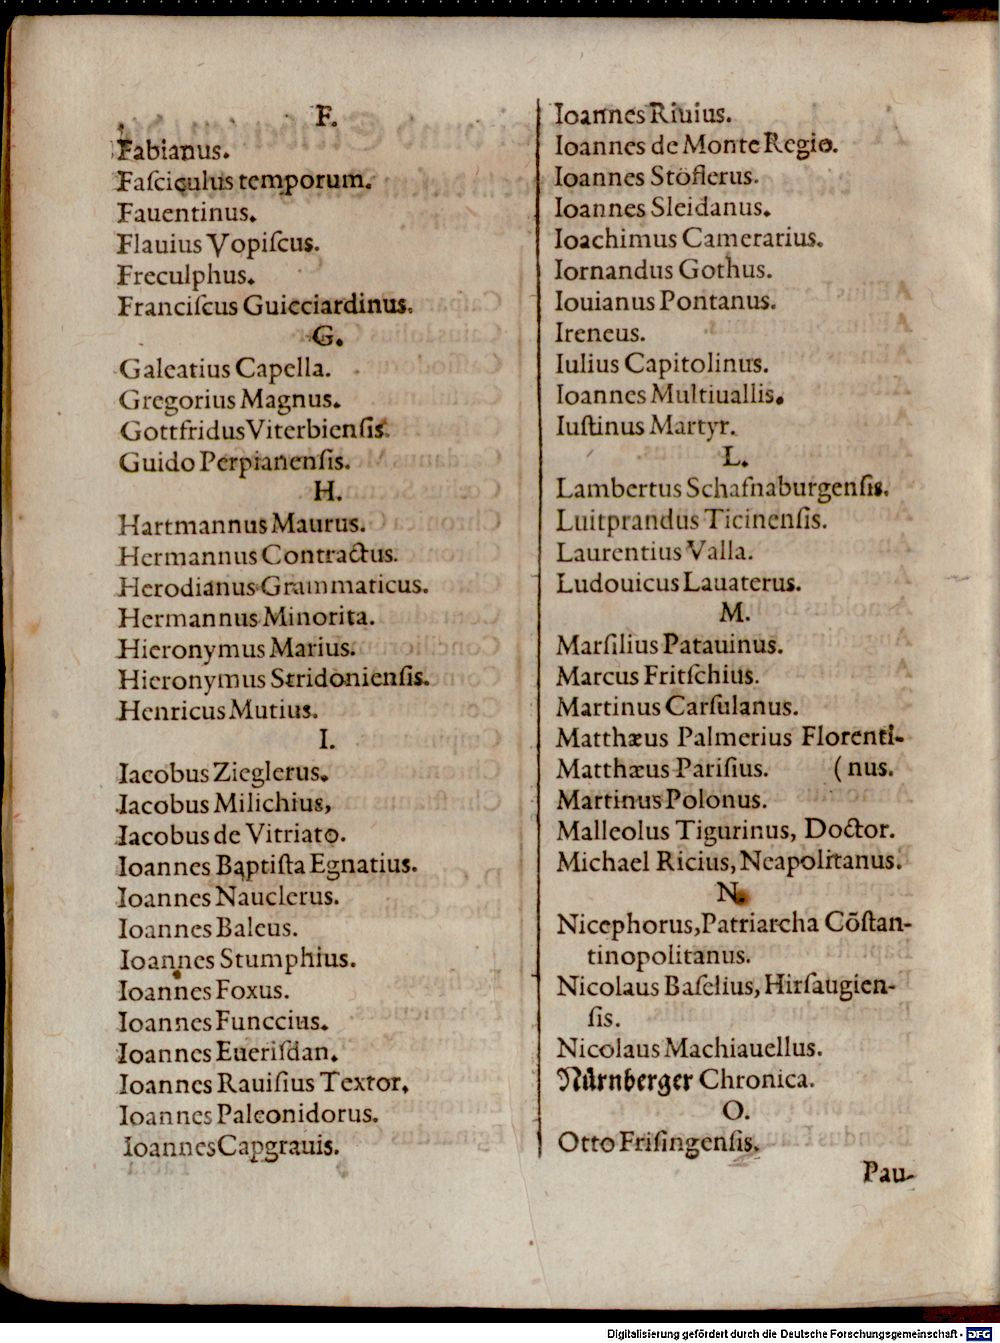 F.
Fabianus.
Faſciculus temporum.
Fauentinus.
Flauius Vopiſcus.
Freculphus.
Franciſcus Guicciardinus.
G.
Galeatius Capella.
Gregorius Magnus.
Gottfridus Viterbienſis.
Guido Perpianenſis.
H.
Hartmannus Maurus.
Hermannus Contractus.
Herodianus Grammaticus.
Hermannus Minorita.
Hieronymus Marius.
Hieronymus Stridonienſis.
Henricus Mutius.
I.
Iacobus Zieglerus.
Iacobus Milichius,
Iacobus de Vitriato.
Ioannes Baptiſta Egnatius.
Ioannes Nauclerus.
Ioannes Baleus.
Ioannes Stumphius.
Ioannes Foxus.
Ioannes Funccius.
Ioannes Eueriſdan.
Ioannes Rauiſius Textor.
Ioannes Paleonidorus.
Ioannes Capgrauis.
Ioannes Riuius.
Ioannes de Monte Regio.
Ioannes Stoflerus.
Ioannes Sleidanus.
Ioachimus Camerarius.
Iornandus Gothus.
Iouianus Pontanus.
Ireneus.
Iulius Capitolinus.
Ioannes Multiuallis.
Iuſtinus Martyr.
L.
Lambertus Schafnaburgenſis.
Luitprandus Ticinenſis.
Laurentius Valla.
Ludouicus Lauaterus.
M.
Marſilius Patauinus.
Marcus Fritſchius.
Martinus Carſulanus.
Matthæus Palmerius Florenti-
Matthæus Pariſius. (nus.
Martinus Polonus.
Malleolus Tigurinus, Doctor.
Michael Ricius, Neapolitanus.
N.
Nicephorus, Patriarcha Cõſtan-
tinopolitanus.
Nicolaus Baſelius, Hirſaugien-
ſis.
Nicolaus Machiauellus.
Nürnberger Chronica.
O.
Otto Friſingenſis.
Pau-
Digitalisierung gefördert durch die Deutsche Forschungsgemeinschaft - DFG